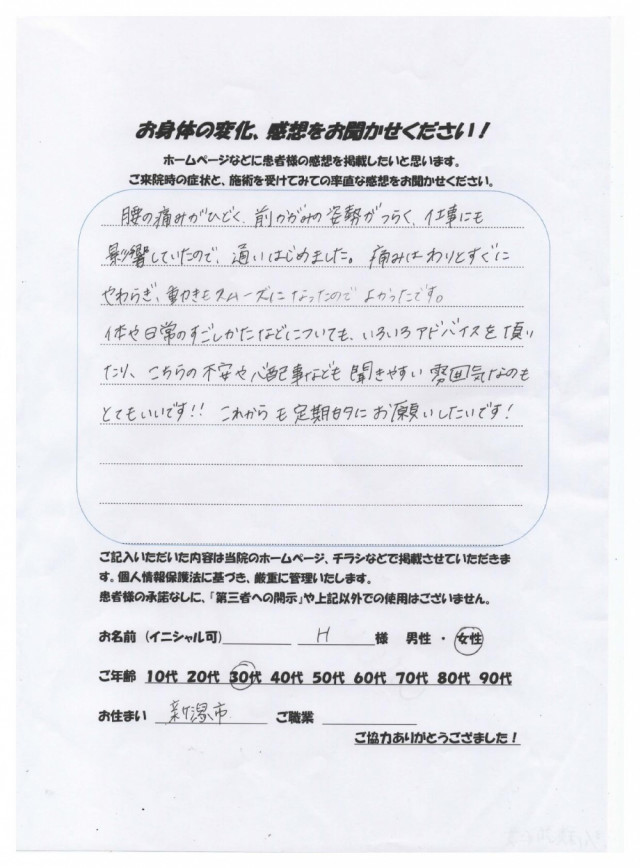 お身体の変化、感想をお聞かせください!
ホームページなどに患者様の感想を掲載したいと思います。
ご来院時の症状と、施術を受けてみての率直な感想をお聞かせください。
腰の痛みがひどく、前かがみの姿勢がつらく、仕事にも
影響していたので、通いはじめました。痛みはわりとすぐに
やわらぎ、動きもスムーズになったのでよかったです。
体や日常のすごしかたなどについても、いろいろアドバイスを頂い
たり、こちらの不安や心配事なども聞きやすい雰囲気なのも
とてもいいです!! これからも定期的にお願いしたいです!
ご記入いただいた内容は当院のホームページ、チラシなどで掲載させていただきま
す。個人情報保護法に基づき、厳重に管理いたします。
患者様の承諾なしに、「第三者への開示」や上記以外での使用はございません。
お名前(イニシャル可) H 様 男性・女性
ご年齢 10代 20代 30代 40代 50代 60代 70代 80代 90代
お住まい 新潟市 ご職業
ご協力ありがとうござました!